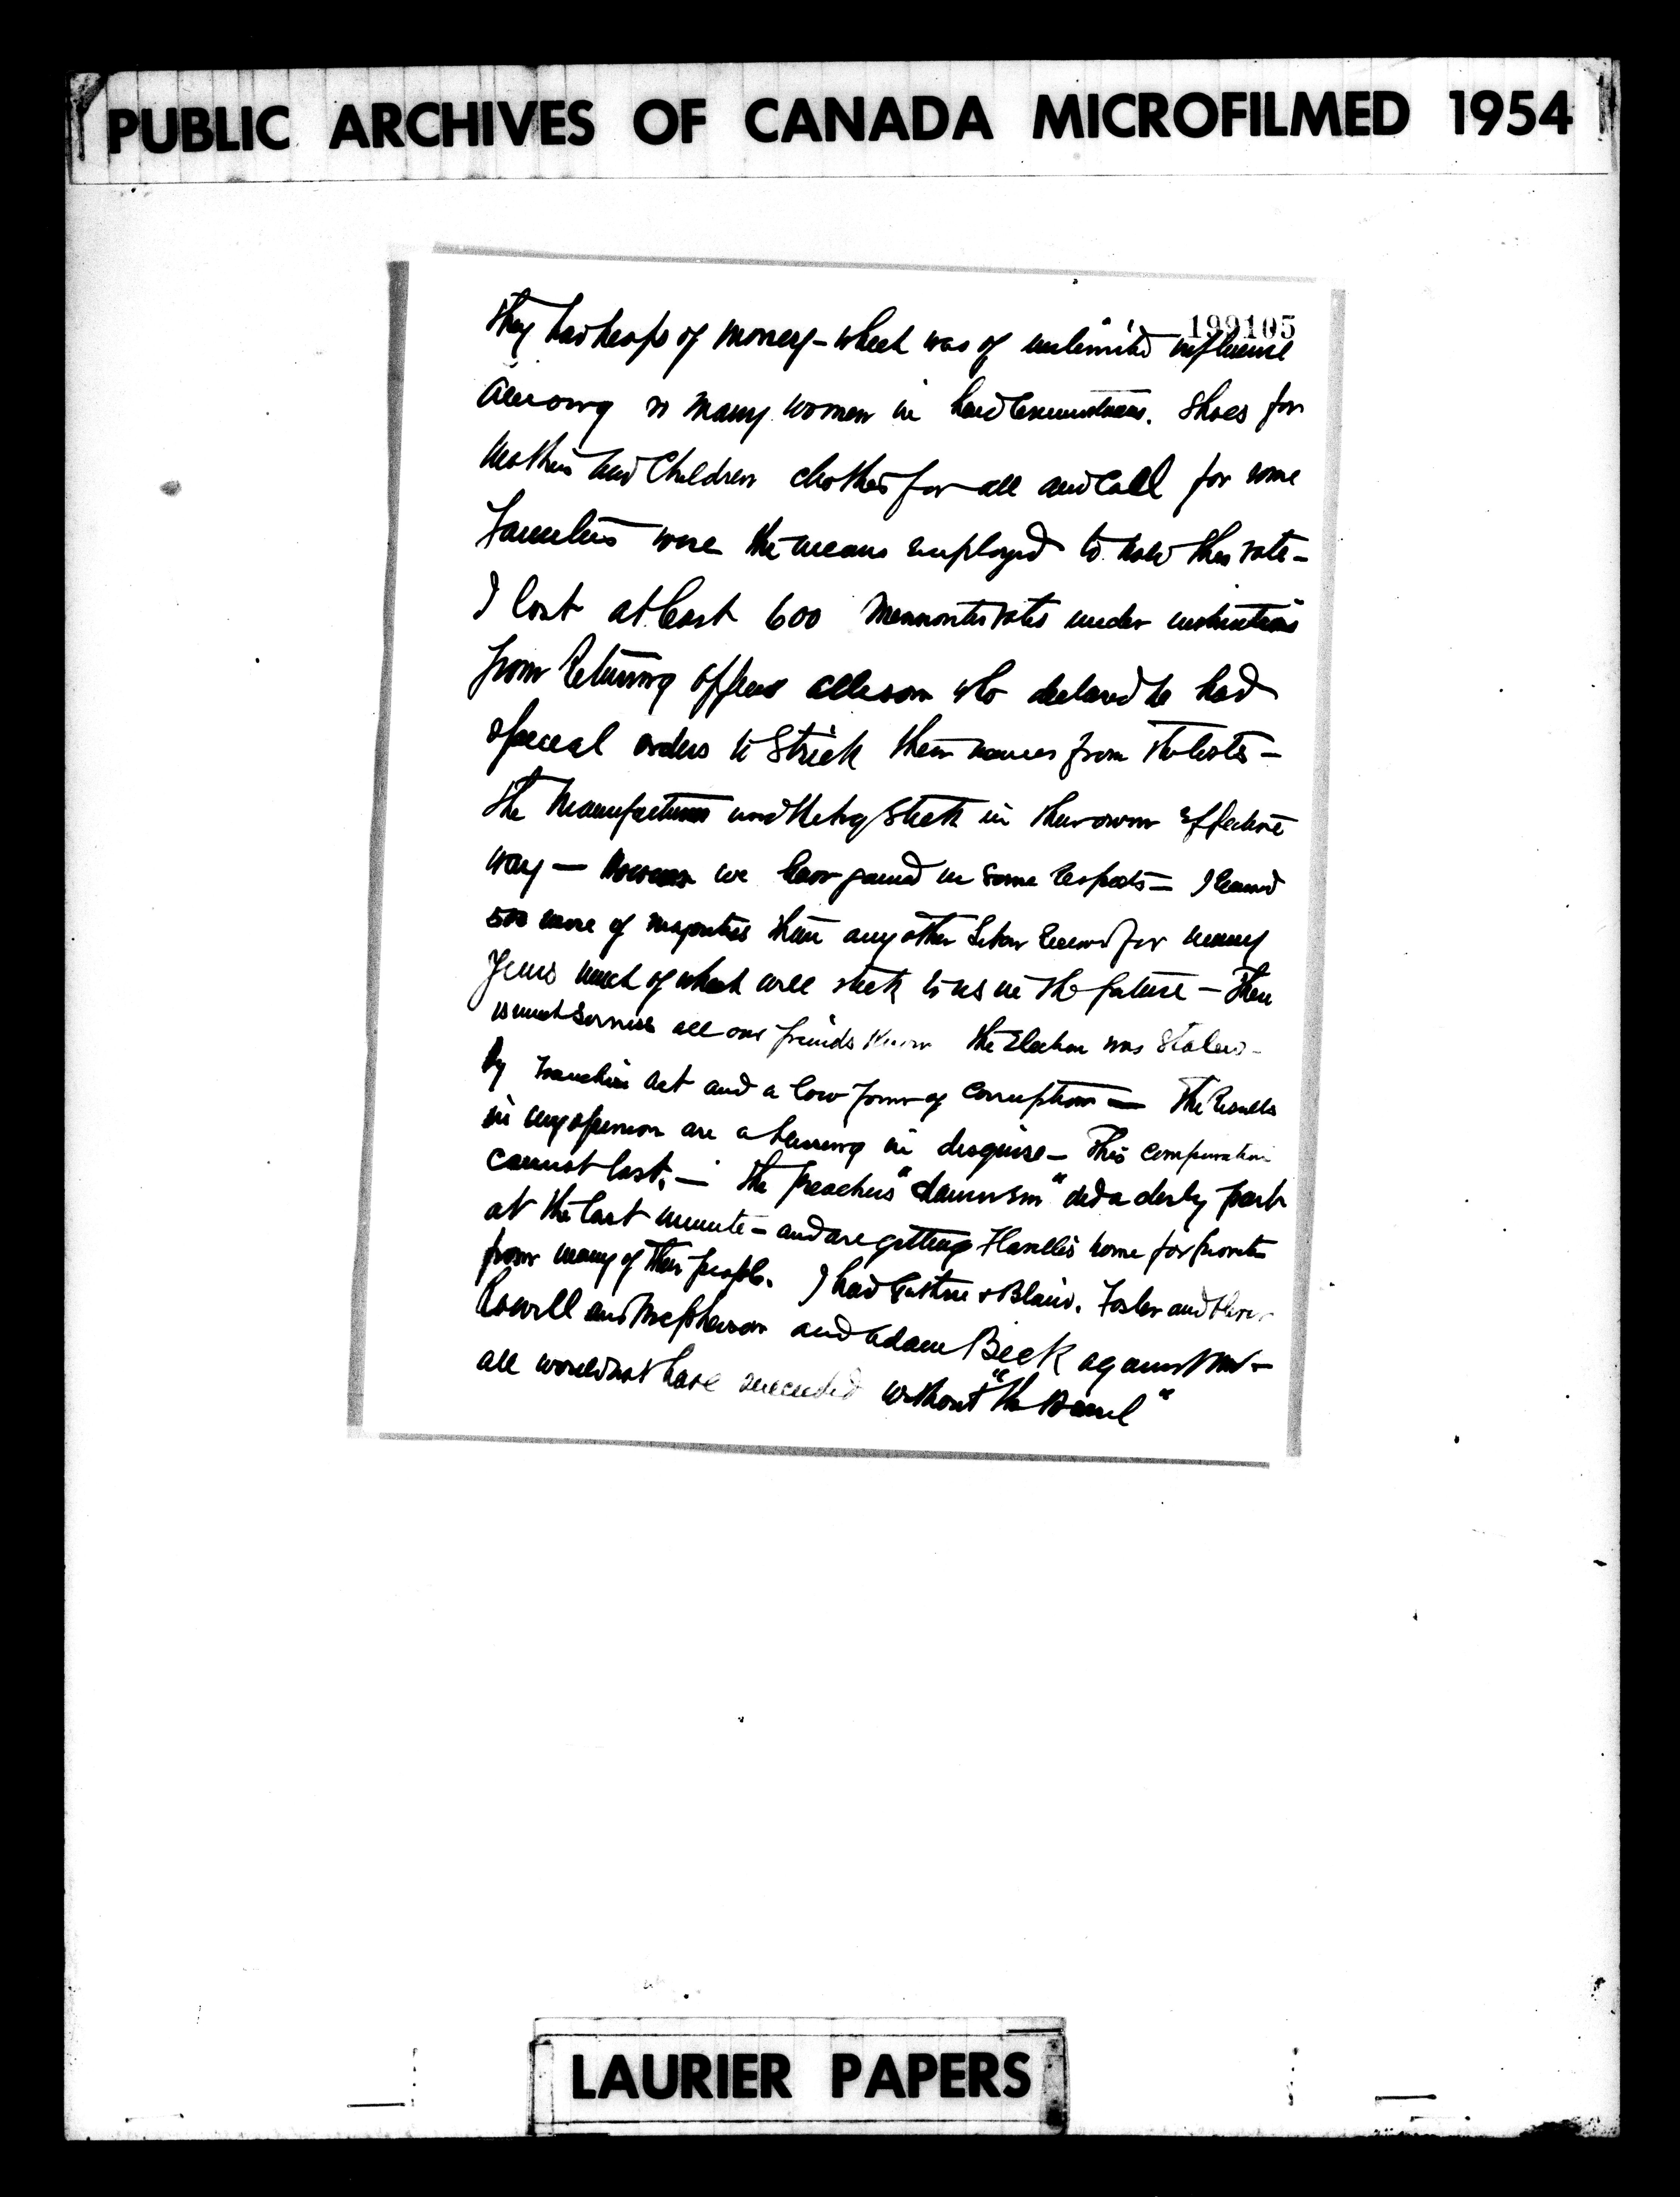 PUBLIC ARCHIVES OF CANADA MICROFILMED 1954
199105
They had heaps of money - which was of unlimited influence
among so many women in hard circumstances. Shoes for
Mothers and Children clothes for all and coal for some
Families were the means employed to hold this vote -
I lost at least 600 Mennonites votes under instructions
from Returning Officer Allison who declared he had
special orders to strick their names from the lists -
The Manufacturers used the big stick in their own Effective
way - However we have gained in some respects - I learned
500 more of majorities than any other Liberal received for many
years much of which will stick to us in the future - There
is much all our friends know the Election was Stolen -
by Franchise Act and a low form of Corruption - The Results
in my opinion are a blessing in disguise - This
cannot last. - The preachers " " did a dirty part
at the last minute - and are getting home for
from many of their people. I had Guthrie & Blain. Foster and
Rowell and McPherson and Adam Beck against me -
all would not have succeeded without "the Barrel"
LAURIER PAPERS